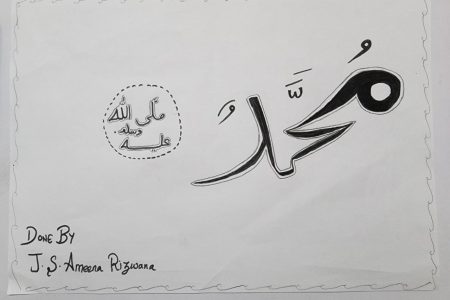 مُحَمَّدُ
صلى الله
وسلم
عليه
DONE BY
J. S. Ameena Rizwana